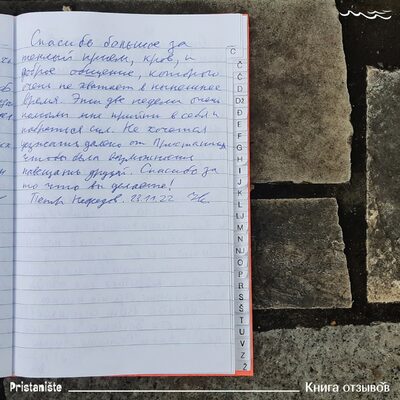 Спасибо большое за
теплый прием, кров, и
доброе общение, которого
очень не хватает в нынешнее
время. Эти две недели очень
помогли мне прийти в себя и
набраться сил. Не хочется
уезжать далеко от Пристанища
чтобы была возможность
навещать друзей. Спасибо за
то что вы делаете!
Петр 28.11.22
C
Č
Ć
D
DŽ
Đ
E
F
G
H
I
J
K
L
LJ
M
N
NJ
O
P
R
S
Š
T
U
V
Z
Ž
Pristanište
Книга отзывов